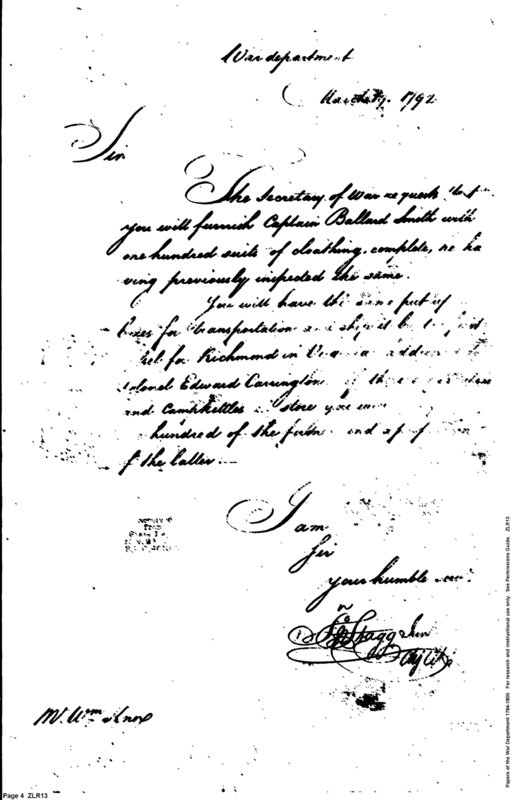 War department
March 1792
Sir
The Secretary of War requests that
you will furnish Captain Ballard Smith with
one hundred suits of cloathing, complete, he ha
ving previously inspected the same.
You will have the same put up
boxes for transportation and ship it by the first
for Richmond in Virginia address
Colonel Edward Carrington if there are
and Campkettles in store you
hundred of the former and
of the latter
I am
Sir
your humble serv.
Jno Stagg Junr
Mr. Wm. Knox
Page 4 ZLR13
Papers of the War Department 1784-1800. For research and instructional use only. See Permissions Guide. ZLR13